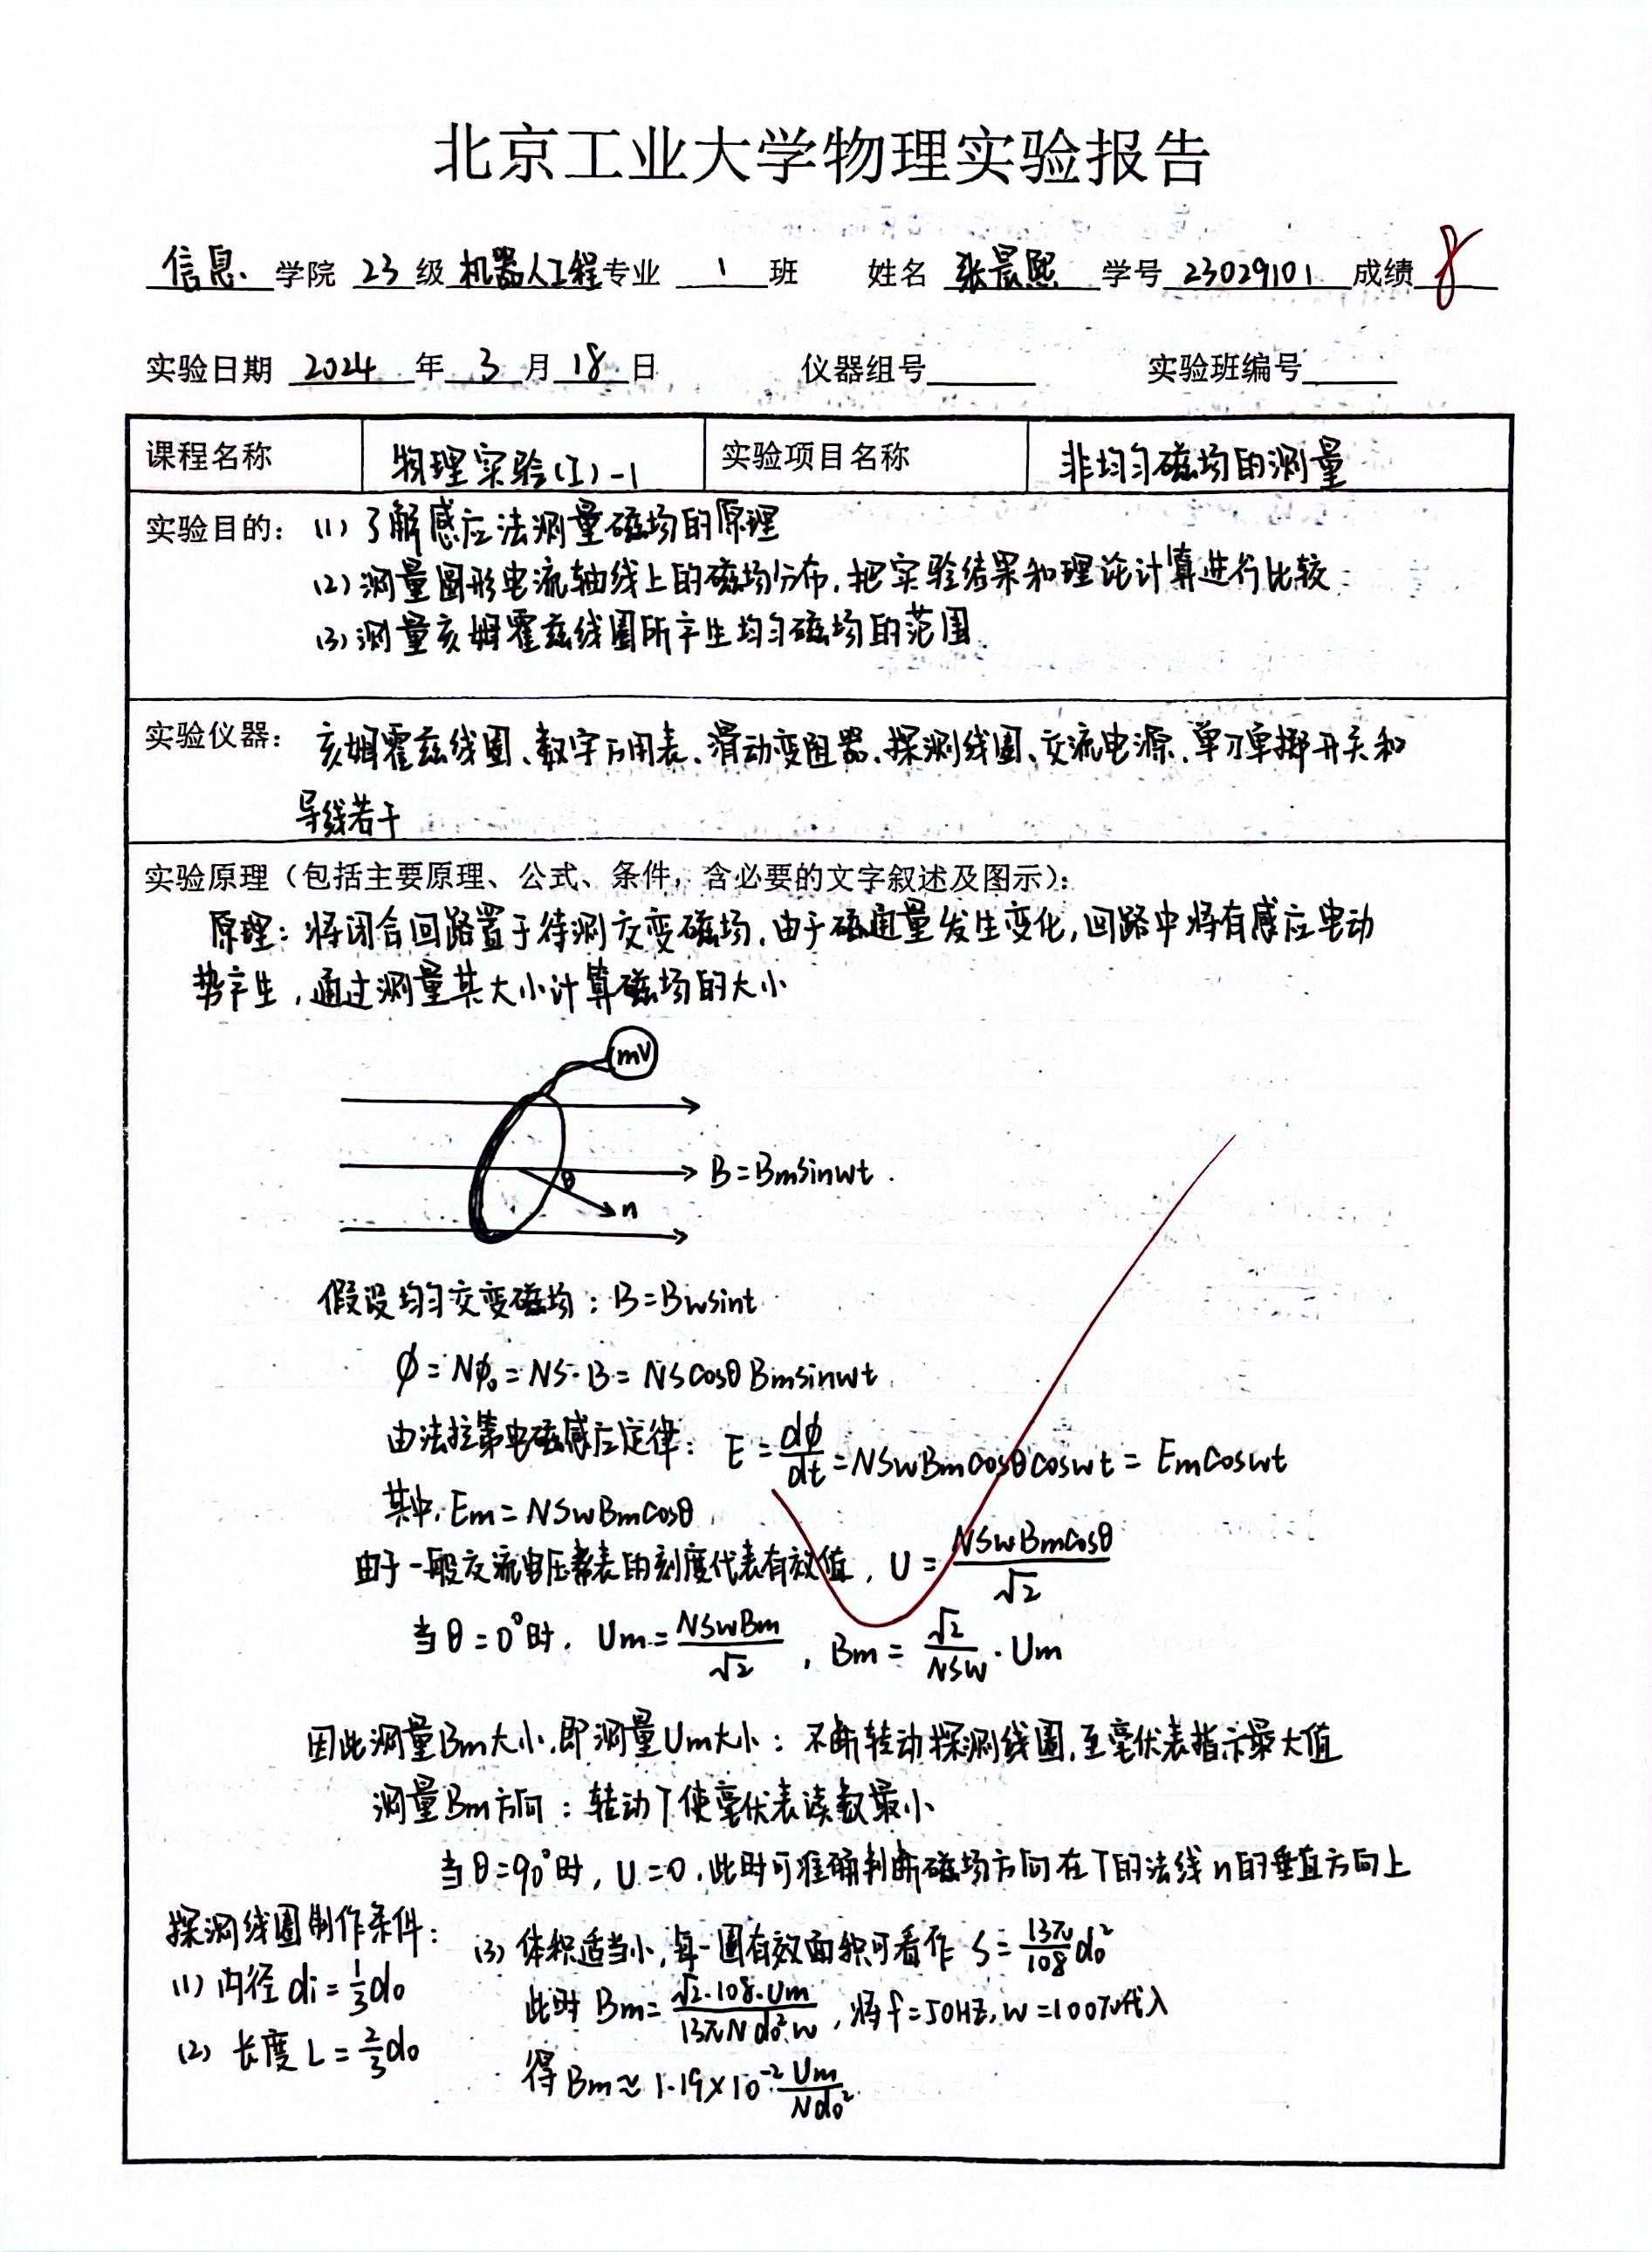 北京工业大学物理实验报告
信息 学院 23 级 机器人工程 专业 1 班 姓名 张晨熙 学号 23029101 成绩 8
实验日期 2024 年 3 月 18 日 仪器组号 实验班编号
课程名称 物理实验(I)-1 实验项目名称 非均匀磁场的测量
实验目的: (1) 了解感应法测量磁场的原理
(2) 测量圆形电流轴线上的磁场分布,把实验结果和理论计算进行比较
(3) 测量亥姆霍兹线圈所产生均匀磁场的范围.
实验仪器: 亥姆霍兹线圈、数字万用表、滑动变阻器、探测线圈、交流电源、单刀单掷开关和
导线若干
实验原理(包括主要原理、公式、条件,含必要的文字叙述及图示):
原理: 将闭合回路置于待测交变磁场,由于磁通量发生变化,回路中将有感应电动
势产生,通过测量其大小计算磁场的大小
mV
B=Bmsinwt.
θ
n
假设均匀交变磁场: B=Bwsint
φ=Nφ₀=NS·B=NScosθBmsinwt
由法拉第电磁感应定律: E=dφ/dt=NSwBmcosθcoswt=Emcoswt
其中,Em=NSwBmcosθ
由于一般交流电压表的刻度代表有效值, U=NSwBmcosθ/√2
当θ=0°时, Um=NSwBm/√2, Bm=√2/NSw·Um
因此测量Bm大小,即测量Um大小: 不断转动探测线圈,至毫伏表指示最大值
测量Bm方向: 转动T使毫伏表读数最小
当θ=90°时, U=0,此时可准确判断磁场方向在T的法线n的垂直方向上
探测线圈制作条件:
(1) 内径 di=1/3do
(2) 长度 L=2/3do
(3) 体积适当小,每一圈有效面积可看作 S=13π/108do²
此时 Bm=√2·108·Um/13πNdo²w, 将f=50HZ,w=100π代入
得 Bm≈1.19×10⁻² Um/Ndo²